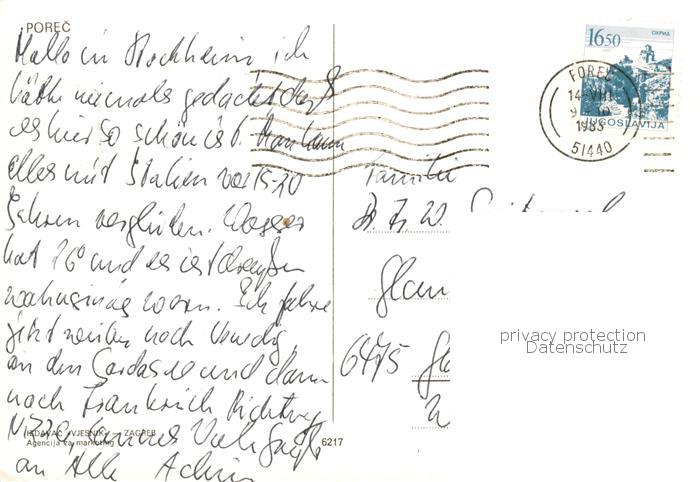 POREČ
Hallo in Stockheim ich
hätte niemals gedacht daß
es hier so schön ist. Man kann
alles mit Italien vor 15-20
Jahren vergleichen. Wasser
hat 26° und es ist draußen
wahnsinnig warm. Ich fahre
jetzt weiter nach Venedig
an den Gardasee und dann
nach Frankreich Richtung
Nizza Cannes Viele Grüße
an Alle Achim
IZDAVAČ VJESNIK — ZAGREB
Agencija za marketing
6217
16.50
ОХРИД
JUGOSLAVIJA
POREČ
14.VIII
1985
51440
Familie
W.
Glau
6475
privacy protection
Datenschutz